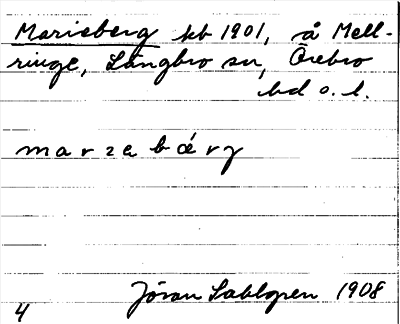 Marieberg kb 1901, å Mell-
ringe, Längbro sn, Örebro
hd o. l.
marzebǽry
Jöran Sahlgren 1908
4